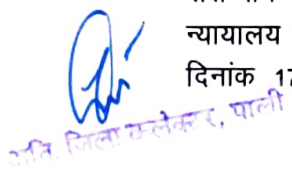 न्यायालय
दिनांक 17
अति. जिला कलेक्टर, पाली